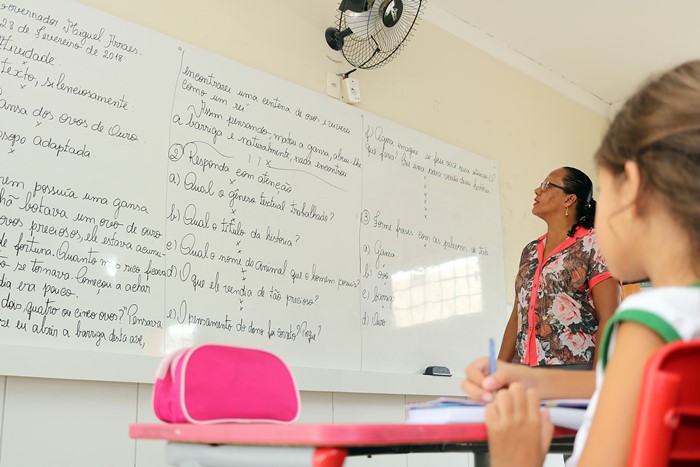 Governador Miguel Arraes.
28 de Fevereiro de 2018.
atividade.
texto, silenciosamente.
Gansa dos ovos de Ouro
Esopo adaptada
possuía uma gansa
botava um ovo de ouro
ovos preciosos, ele estava
de fortuna. Quanto mais rico
se tornava. Começou a achar
dia era pouco.
dois, quatro ou cinco ovos? "Pensava
se eu abrir a barriga desta ave,
encontrarei uma centena de ovos e viverei
como um rei"
Assim pensando, matou a gansa, abriu-lhe
a barriga e naturalmente, nada encontrou
② Responda com atenção
a) Qual o gênero textual trabalhado?
b) Qual o título da história?
c) Qual o nome do animal que o homem possuía?
d) O que ele vendia de tão precioso?
e) O pensamento do dono foi correto? Porque?
f) Agora imagine se fosse você
que faria?
③ Forme frases com as palavras
a) Gansa
b) Ovo
c) barriga
d) Ouro